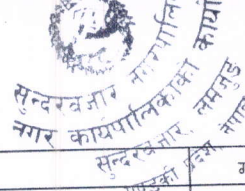 सुन्दरबजार नगरपालिका
नगर कार्यपालिकाको कार्या
सुन्दरबजार, लमजुङ